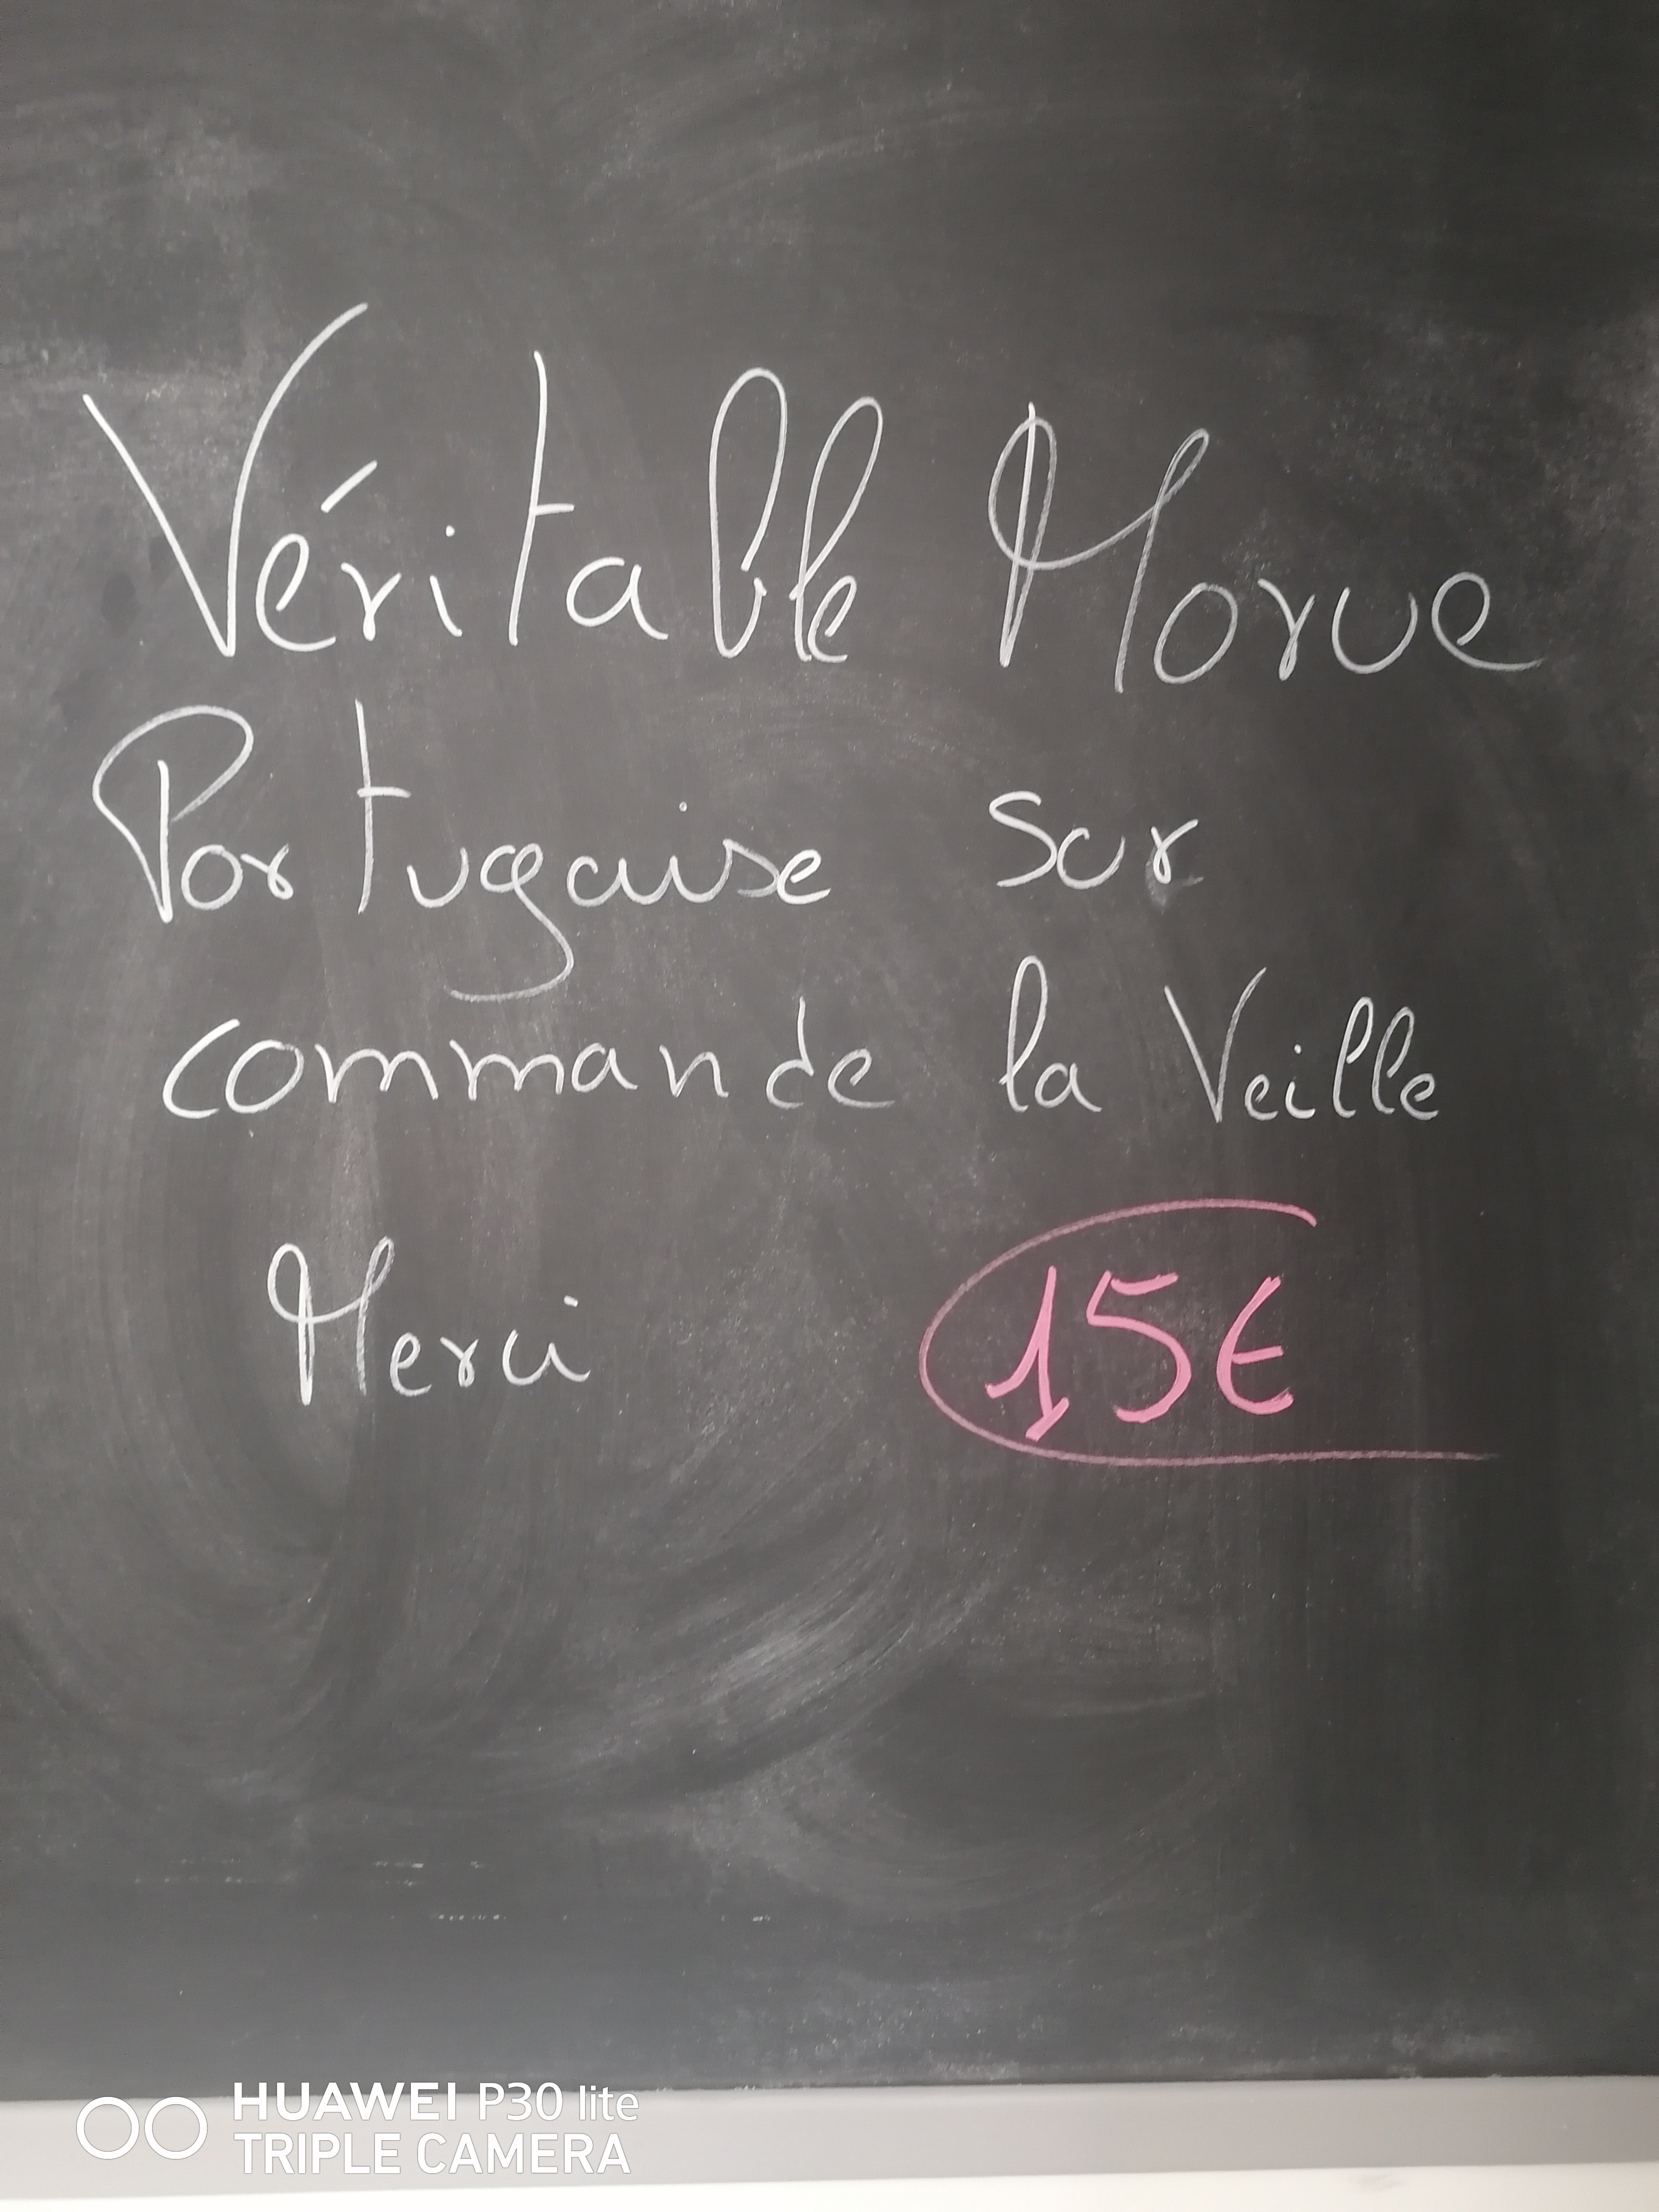 Véritable Morue
Portugaise sur
commande la Veille
Merci 15€
HUAWEI P30 lite
TRIPLE CAMERA